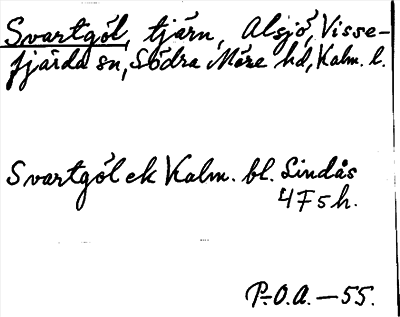 Svartgöl, tjärn, Alsjö, Visse-
fjärda sn, Södra Möre hd, Kalm. l.
Svartgöl ek Kalm. bl. Lindås
4F5h.
P.-O.A. — 55.